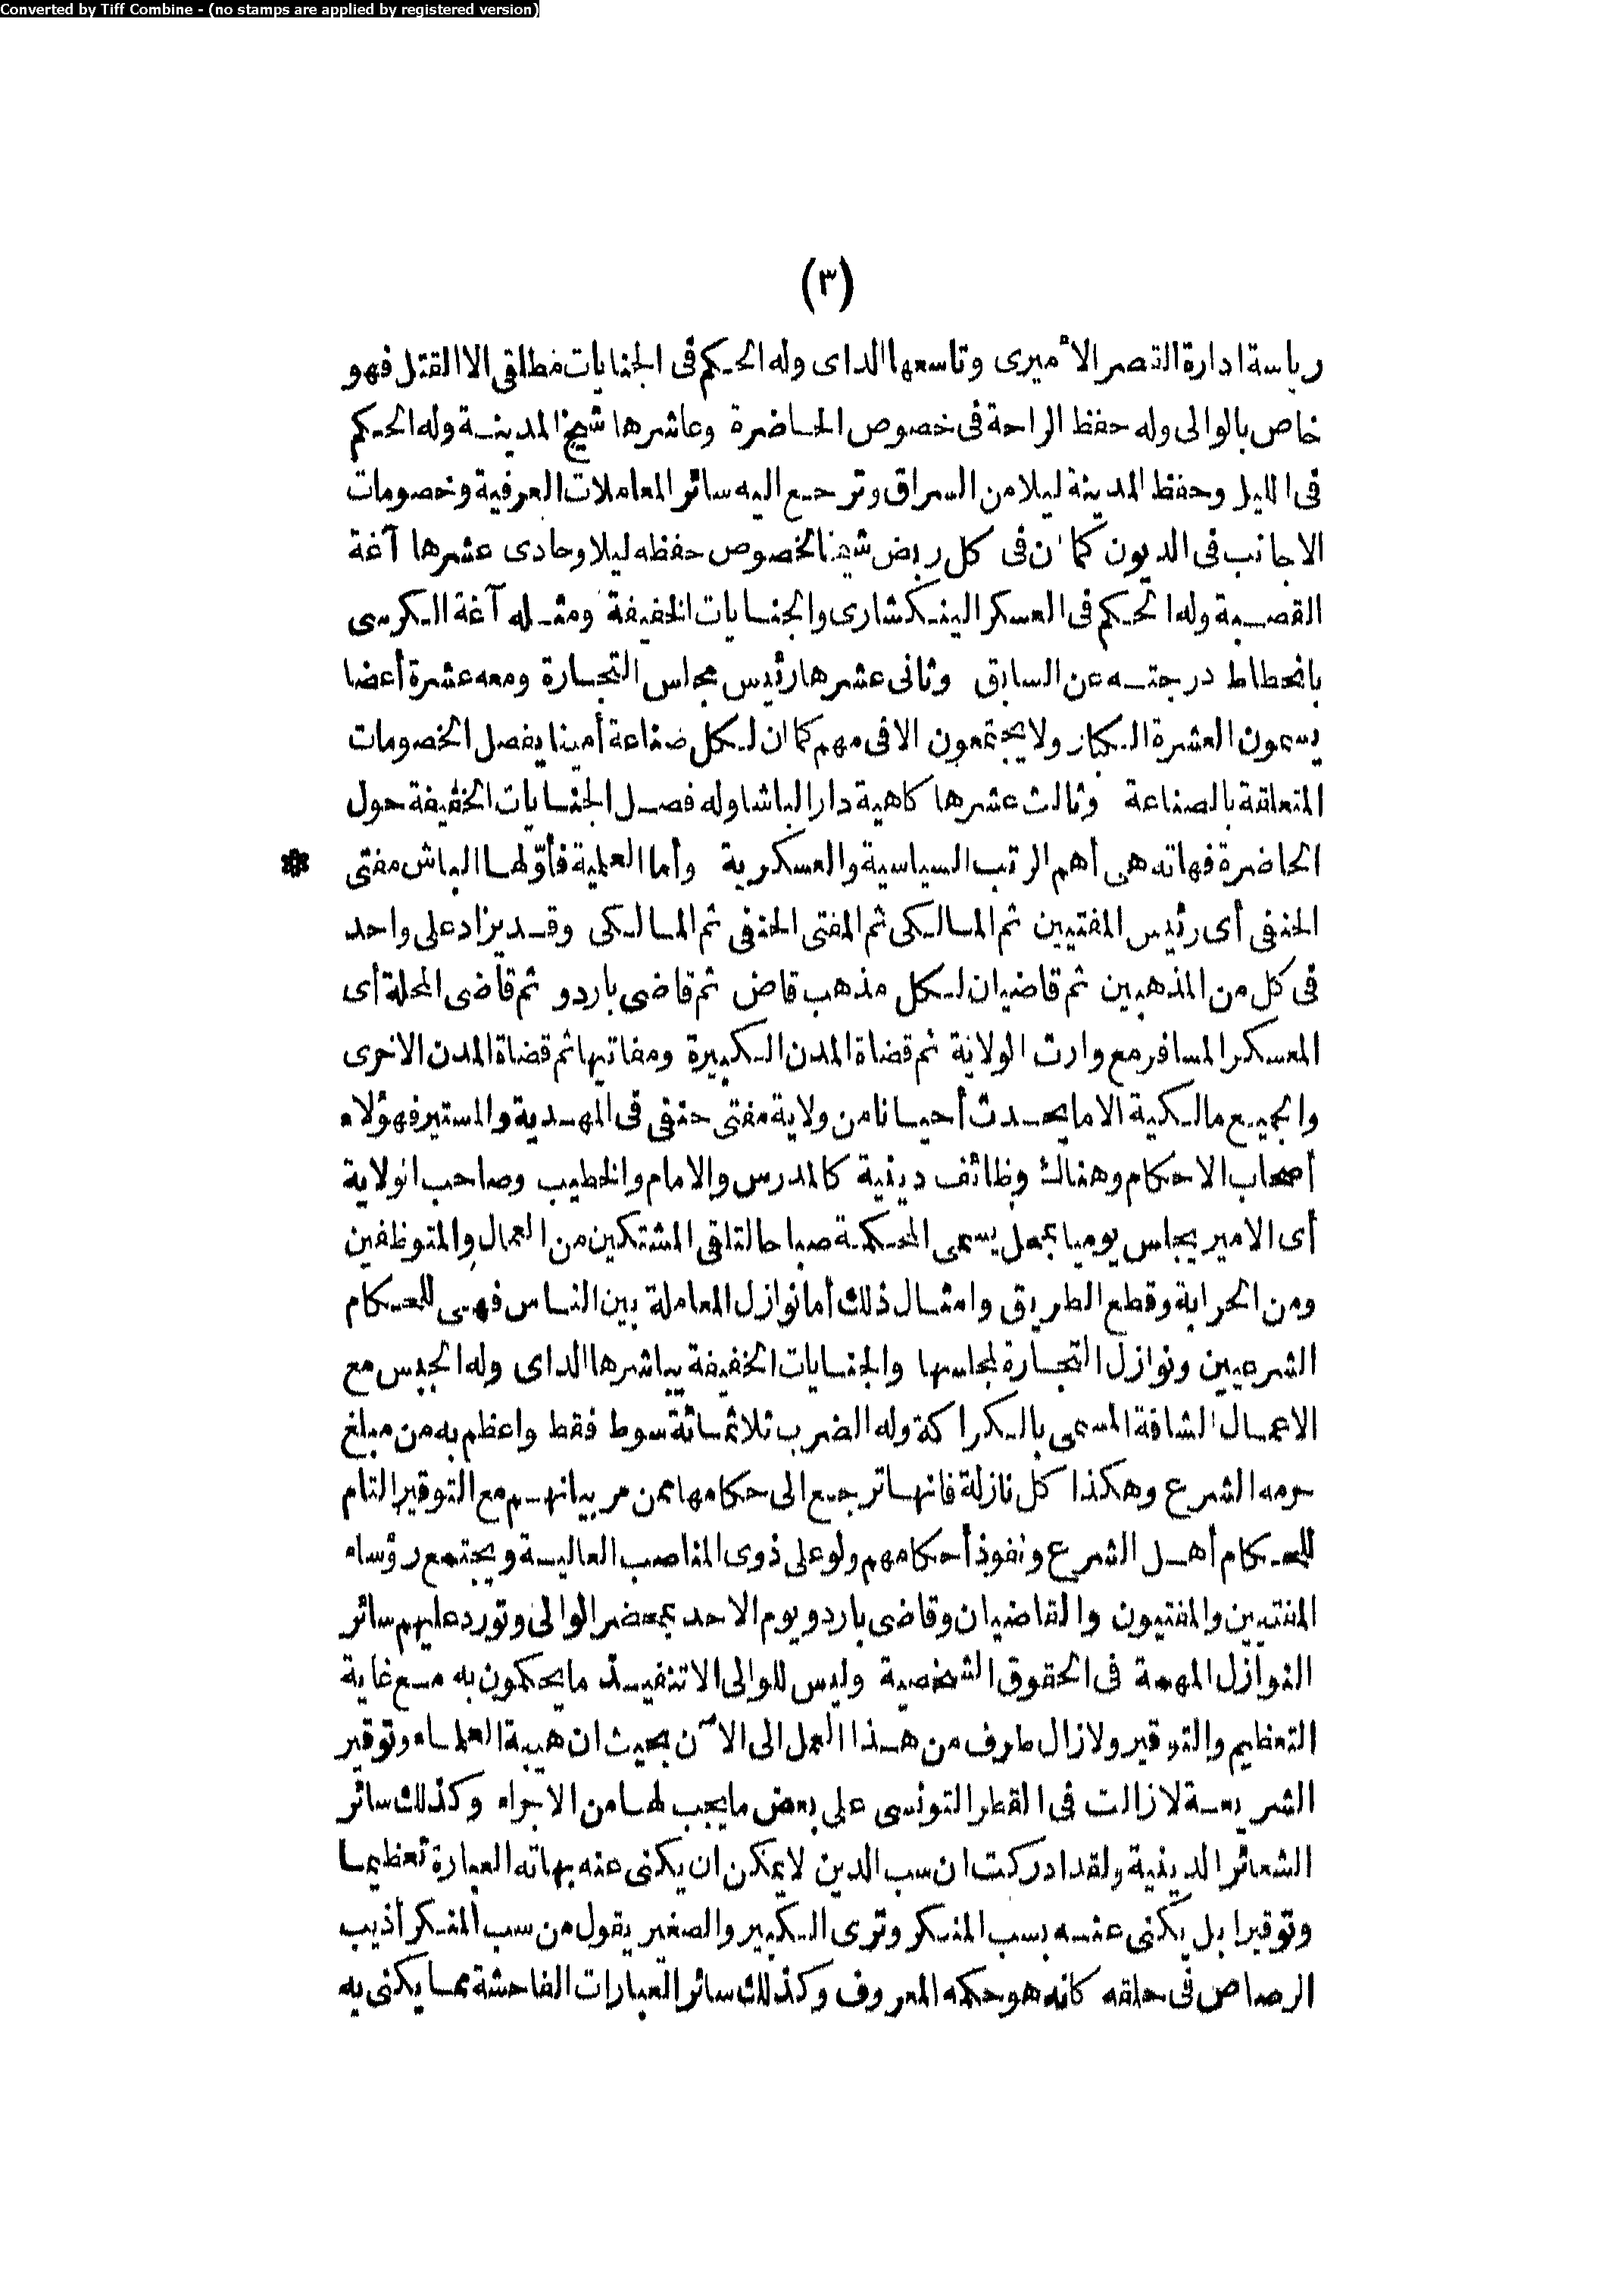 Converted by Tiff Combine - (no stamps are applied by registered version)
(٣)
رياسة ادارة القصر الأميرى وتاسعها الداى وله الحكم فى الجنايات مطلقى الا القتل فهو
خاص بالوالى وله حفظ الراحة فى خصوص الحاضرة وعاشرها شيخ المدينة وله الحكم
فى الليل وحفظ المدينة ليلا من السراق وترجع اليه سائر المعاملات العرفية وخصومات
الاجانب فى الديون كما ان فى كل ربض شيخا لخصوص حفظه ليلا وحادى عشرها آغة
القصبة وله الحكم فى العسكر الينكشارى والجنايات الخفيفة ومثله آغة الكرسى
بانحطاط درجته عن السابق وثانى عشرها رئيس مجلس التجارة ومعه عشرة أعضا
يسمون العشرة الكبار ولا يجتمعون الا فى مهم كما ان لكل صناعة أمينا يفصل الخصومات
المتعلقة بالصناعة وثالث عشرها كاهية دار الباشا وله فصل الجنايات الخفيفة حول
الحاضرة فهاته هى أهم الرتب السياسية والعسكرية وأما العلمية فأوّلها الباش مفتى *
الحنفى أى رئيس المفتيين ثم المالكى ثم المفتى الحنفى ثم المالكى وقد يزاد على واحد
فى كل من المذهبين ثم قاضيان لكل مذهب قاض ثم قاضى باردو ثم قاضى المحلة أى
المعسكر المسافر مع وارث الولاية ثم قضاة المدن الكبيرة ومفاتيها ثم قضاة المدن الاخرى
والجميع مالكية الا ما يحدث أحيانا من ولاية مفتى حنفى فى المهدية والمستير فهؤلاء
أصحاب الاحكام وهناك وظائف دينية كالمدرس والامام والخطيب وصاحب الولاية
أى الامير يجلس يوميا بمحل يسمى المحكمة صباحا لتلقى المشتكين من العمال والمتوظفين
ومن الحرابة وقطع الطريق وامثال ذلك أما نوازل المعاملة بين الناس فهى للحكام
الشرعيين ونوازل التجارة لمجلسها والجنايات الخفيفة يباشرها الداى وله الحبس مع
الاعمال الشاقة المسمى بالكراكة وله الضرب ثلاثمائة سوط فقط واعظم به من مبلغ
حرمه الشرع وهكذا كل نازلة فانها ترجع الى حكامها ممن مر بيانهم مع التوقير التام
للحكام أهل الشرع ونفوذ أحكامهم ولو على ذوى المناصب العالية ويجتمع رؤساء
المفتيين والمفتيون والقاضيان وقاضى باردو يوم الاحد بمحضر الوالى وتورد عليهم سائر
النوازل المهمة فى الحقوق الشخصية وليس للوالى الا تنفيذ ما يحكمون به مع غاية
التعظيم والتوقير ولا زال طرف من هذا العمل الى الآن بحيث ان هيبة العلماء وتوقير
الشريعة لا زالت فى القطر التونسى على بعض ما يجب لها من الاجراء وكذلك سائر
الشعائر الدينية ولقد ادركت ان سب الدين لا يمكن ان يكنى عنه بهاته العبارة تعظيما
وتوقيرا بل يكنى عنه بسب المنكر وترى الكبير والصغير يقول من سب المنكر أذيب
الرصاص فى حلقه كانه هو حكمه المعروف وكذلك سائر العبارات الفاحشة مما يكنى به